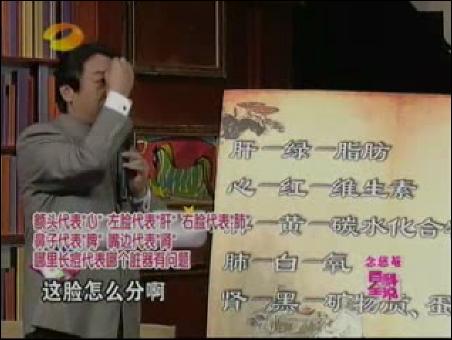 肝一绿一脂肪
心一红一维生素
一黄一碳水化合
肺一白一氧
肾一黑一矿物质、蛋
额头代表“心”左脸代表“肝”右脸代表“肺”
鼻子代表“脾”嘴边代表“肾”
哪里长痘代表哪个脏器有问题
这脸怎么分啊